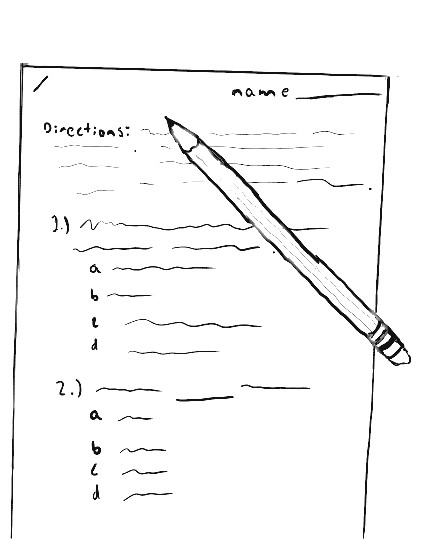 name
Directions:
1.)
a
b
c
d
2.)
a
b
c
d